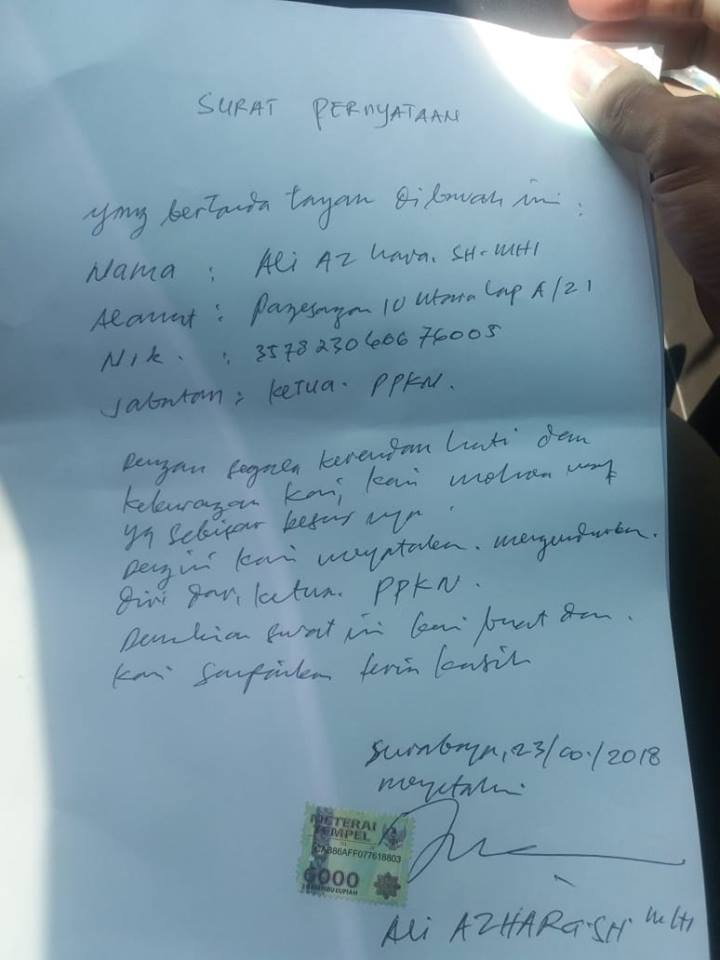 SURAT PERNYATAAN
yang bertanda tangan dibawah ini :
Nama : Ali AZhara. SH-MHI
Alamat : Pagesangan IV Utara Lap A/21
Nik. :
Jabatan : Ketua. PPKN.
Dengan segala kerendan hati dan
kekurangan kami, kami mohon maaf
yg sebesar besar nya.
Dengini kami menyatakan. mengundurkan.
diri dari ketua. PPKN.
Demikian surat ini kami buat dan.
kami sampaikan terima kasih
Surabaya, 23/ /2018
METERAI
TEMPEL
6000
ENAM RIBU RUPIAH
Ali AZHARA.SH MHI